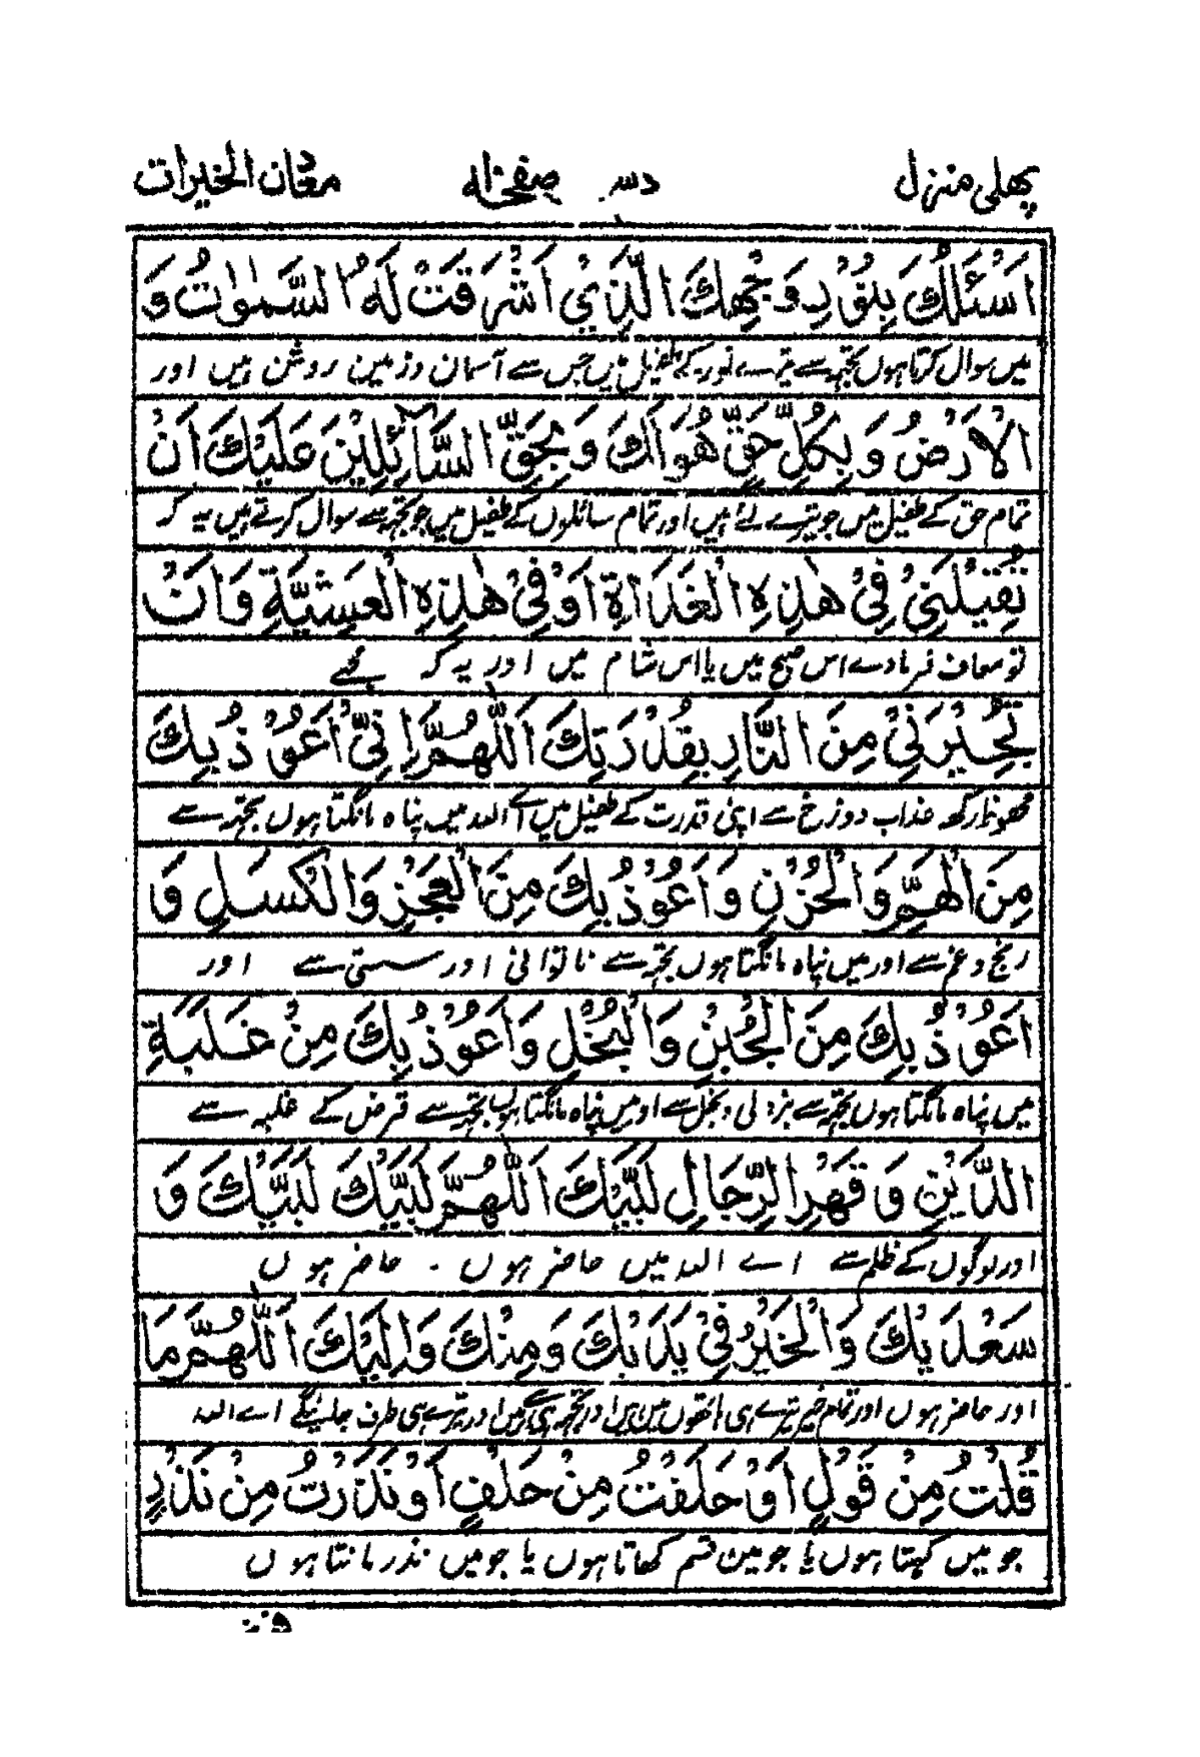 پہلی منزل دس صفحہ معدن الخیرات
اَسْئَلُكَ بِنُوْرِ وَجْهِكَ الَّذِيْ اَشْرَقَتْ لَهُ السَّمٰوٰتُ وَ
میں سوال کرتا ہوں تجھ سے تیرے نور کے طفیل میں جس سے آسمان و زمین روشن ہیں اور
الْاَرْضُ وَ بِكُلِّ حَقٍّ هُوَ لَكَ وَ بِحَقِّ السَّآئِلِيْنَ عَلَيْكَ اَنْ
تمام حق کے طفیل میں جو تیرے لئے ہیں اور تمام سائلوں کے طفیل میں جو تجھ سے سوال کرتے ہیں یہ کہ
تُقِيْلَنِيْ فِيْ هٰذِهِ الْغَدَاةِ اَوْ فِيْ هٰذِهِ الْعَشِيَّةِ وَ اَنْ
تو معاف فرمادے اس صبح میں یا اس شام میں اور یہ کہ مجھے
تُجِيْرَنِيْ مِنَ النَّارِ بِقُدْرَتِكَ اَللّٰهُمَّ اِنِّيْ اَعُوْذُ بِكَ
محفوظ رکھ عذاب دوزخ سے اپنی قدرت کے طفیل میں اے اللہ میں پناہ مانگتا ہوں تجھ سے
مِنَ الْهَمِّ وَ الْحُزْنِ وَ اَعُوْذُ بِكَ مِنَ الْعَجْزِ وَ الْكَسَلِ وَ
رنج و غم سے اور میں پناہ مانگتا ہوں تجھ سے ناتوانی اور سستی سے اور
اَعُوْذُ بِكَ مِنَ الْجُبْنِ وَ الْبُخْلِ وَ اَعُوْذُ بِكَ مِنْ غَلَبَةِ
میں پناہ مانگتا ہوں تجھ سے بزدلی و بخل سے اور میں پناہ مانگتا ہوں تجھ سے قرض کے غلبہ سے
الدَّيْنِ وَ قَهْرِ الرِّجَالِ لَبَّيْكَ اَللّٰهُمَّ لَبَّيْكَ لَبَّيْكَ وَ
اور لوگوں کے ظلم سے اے اللہ میں حاضر ہوں ۔ حاضر ہوں
سَعْدَيْكَ وَ الْخَيْرُ فِيْ يَدَيْكَ وَ مِنْكَ وَ اِلَيْكَ اَللّٰهُمَّ مَا
اور حاضر ہوں اور تمام خیر تیرے ہی ہاتھوں میں ہیں اور تجھ ہی سے ہیں اور تیرے ہی طرف جائینگے اے اللہ
قُلْتُ مِنْ قَوْلٍ اَوْ حَلَفْتُ مِنْ حَلْفٍ اَوْ نَذَرْتُ مِنْ نَذْرٍ
جو میں کہتا ہوں یا جو میں قسم کھاتا ہوں یا جو میں نذر مانتا ہوں